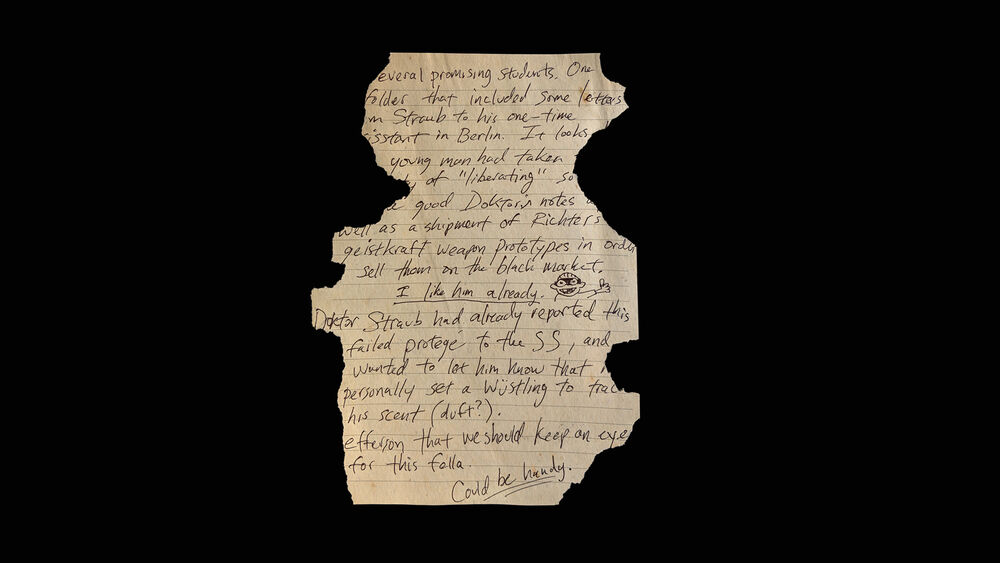 everal promising students. One
folder that included some letters
m Straub to his one-time
sistant in Berlin. It looks
young man had taken
of "liberating" so
good Doktor's notes
well as a shipment of Richter's
geistkraft weapon prototypes in order
sell them on the black market.
I like him already.
Doktor Straub had already reported this
failed protegé to the SS, and
wanted to let him know that
personally set a Wüstling to trac
his scent (duft?).
efferson that we should keep an eye
for this fella.
Could be handy.